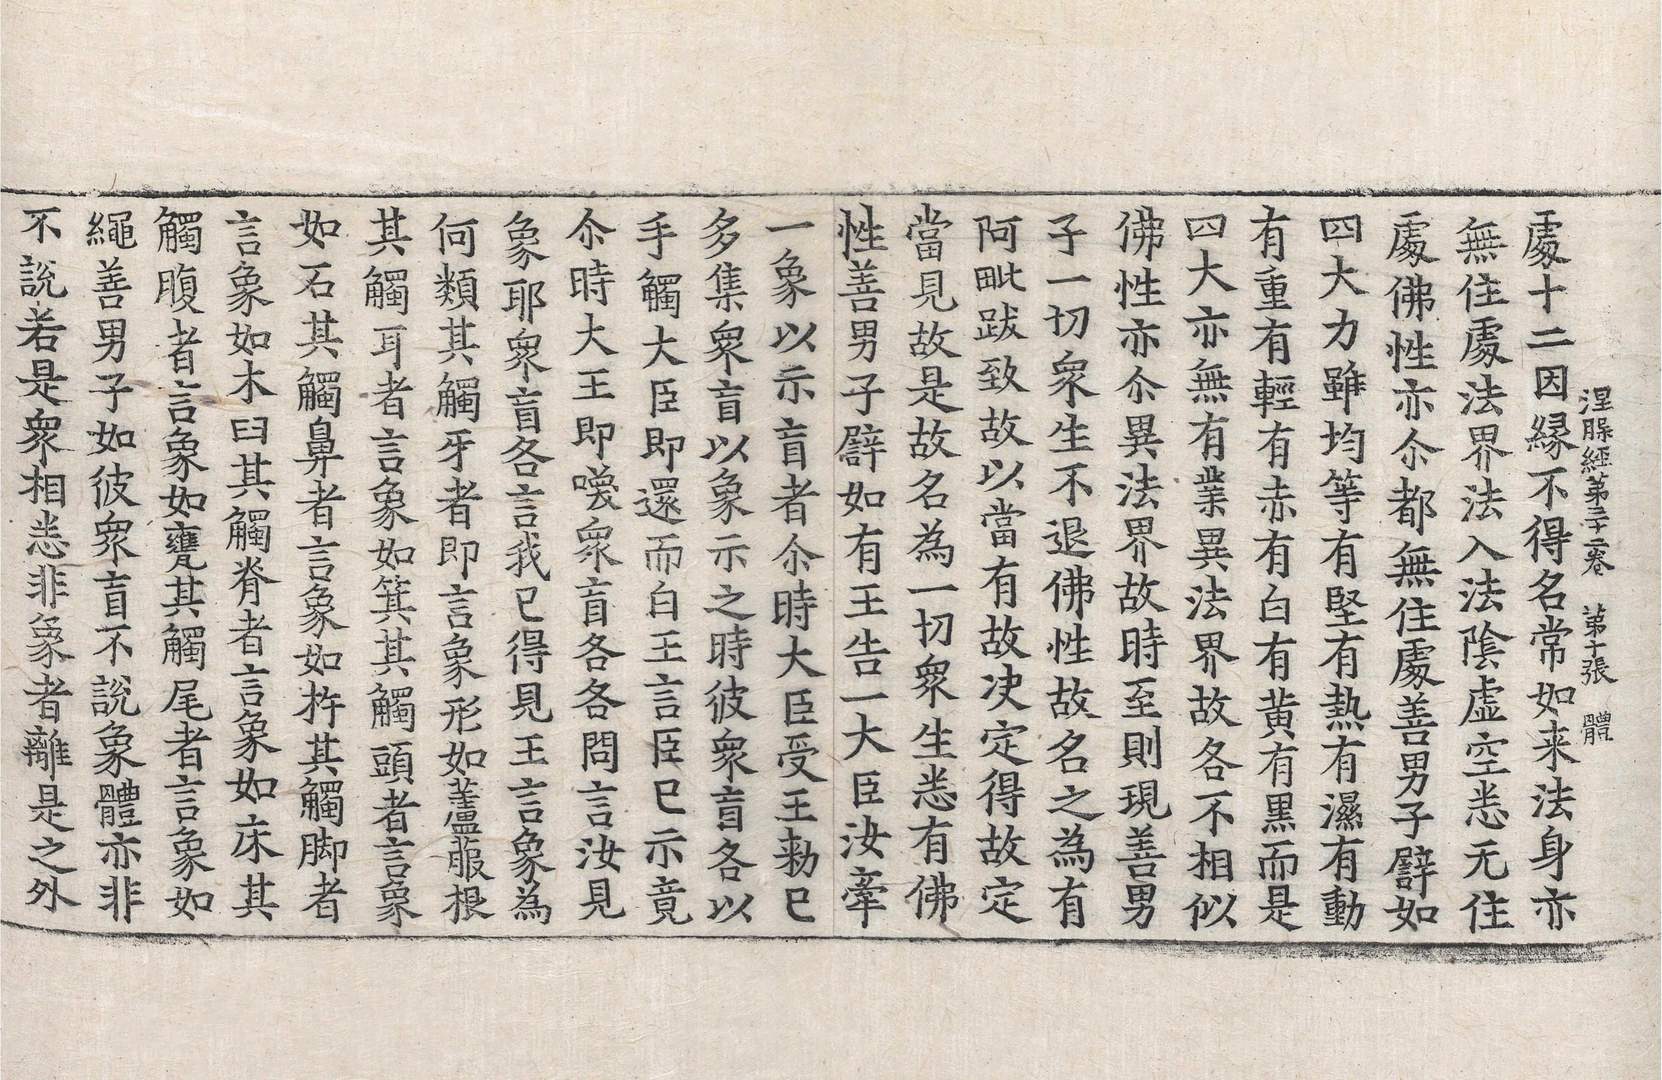 涅槃經第三十二卷 第十張 體
處十二因縁不得名常如来法身亦
無住處法界法入法陰虛空悉无住
處佛性亦尒都無住處善男子譬如
四大力雖均等有堅有熱有濕有動
有重有輕有赤有白有黄有黑而是
四大亦無有業異法界故各不相似
佛性亦尒異法界故時至則現善男
子一切衆生不退佛性故名之為有
阿毗跋致故以當有故决定得故定
當見故是故名為一切衆生悉有佛
性善男子譬如有王告一大臣汝牽
一象以示盲者尒時大臣受王勑已
多集衆盲以象示之時彼衆盲各以
手觸大臣即還而白王言臣已示竟
尒時大王即喚衆盲各各問言汝見
象耶衆盲各言我已得見王言象為
何類其觸牙者即言象形如蘆菔根
其觸耳者言象如箕其觸頭者言象
如石其觸鼻者言象如杵其觸脚者
言象如木臼其觸脊者言象如床其
觸腹者言象如甕其觸尾者言象如
繩善男子如彼衆盲不說象體亦非
不說若是衆相悉非象者離是之外